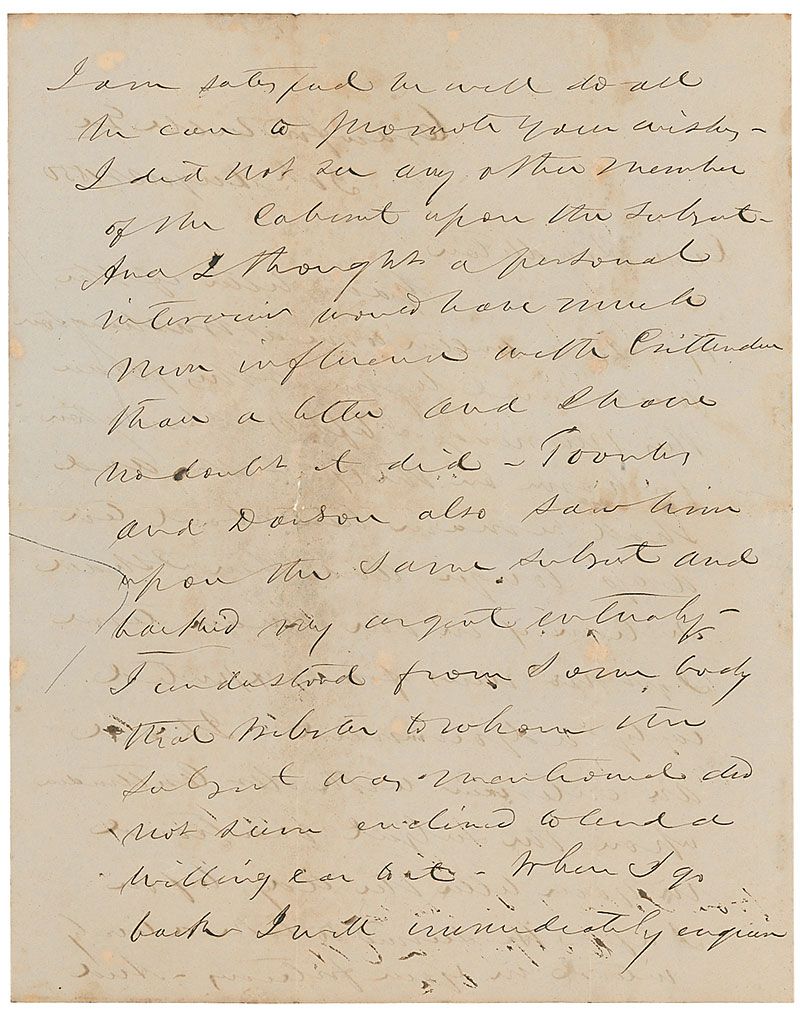 I am satisfied he will do all
he can to promote your wishes -
I did not see any other member
of the Cabinet upon the subject -
And I thought a personal
interview would have much
more influence with Crittenden
than a letter and I have
no doubt it did - Toombs
and Dawson also saw him
upon the same subject and
backed my urgent entreaty -
I understood from some body
that Webster to whom the
subject was mentioned did
not seem enclined to lend a
willing ear to it - When I go
back I will immediately enquire